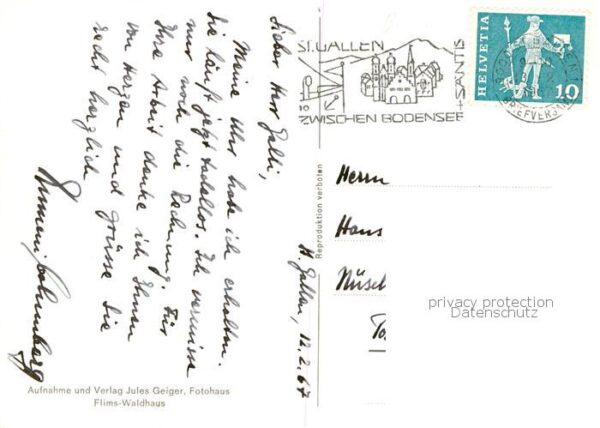 Lieber Herr Galli,
Meine Uhr habe ich erhalten.
Sie läuft jetzt tadellos. Ich vermisse
nur noch die Rechnung. Für
Ihre Arbeit danke ich Ihnen
von Herzen und grüsse Sie
recht herzlich
St. Gallen, 12.2.67
Aufnahme und Verlag Jules Geiger, Fotohaus
Flims-Waldhaus
Reproduktion verboten
ST. GALLEN
SÄNTIS
ZWISCHEN BODENSEE +
HELVETIA
10
BRIEFVERSAND
Herrn
Hans
Nüsch
privacy protection
Datenschutz